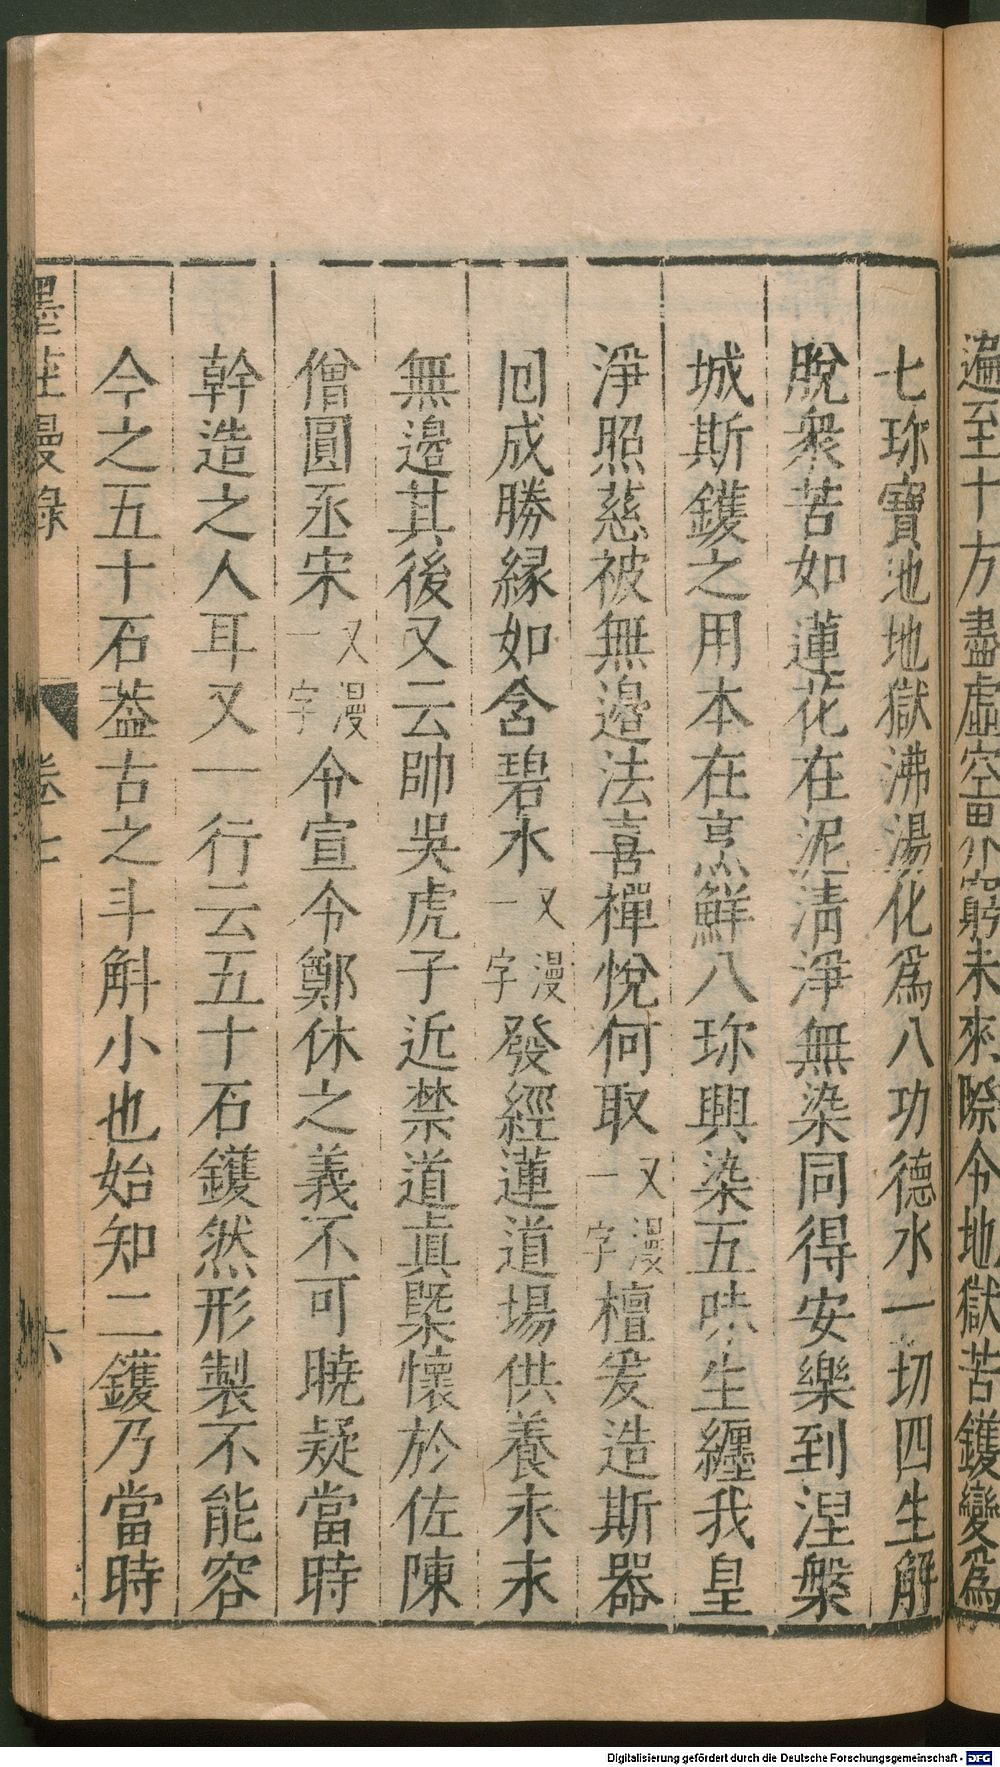 遍至十方盡虛空界窮未來際令地獄苦鑊變爲
七珎寶池地獄沸湯化爲八功德水一切四生解
脫衆苦如蓮花在泥清淨無染同得安樂到涅槃
城斯鑊之用本在烹鮮八珎興染五味生纏我皇
淨照慈被無邉法喜禪悅何取又漫一字檀爰造斯器
囘成勝縁如含碧水又漫一字發經蓮道場供養永永
無邉其後又云帥吳虎子近禁道眞槩懷於佐陳
僧圓丞宋又漫一字令宣令鄭休之義不可曉疑當時
幹造之人耳又一行云五十石鑊然形製不能容
今之五十石葢古之斗斛小也始知二鑊乃當時
墨莊漫錄 卷七 六
Digitalisierung gefördert durch die Deutsche Forschungsgemeinschaft - DFG